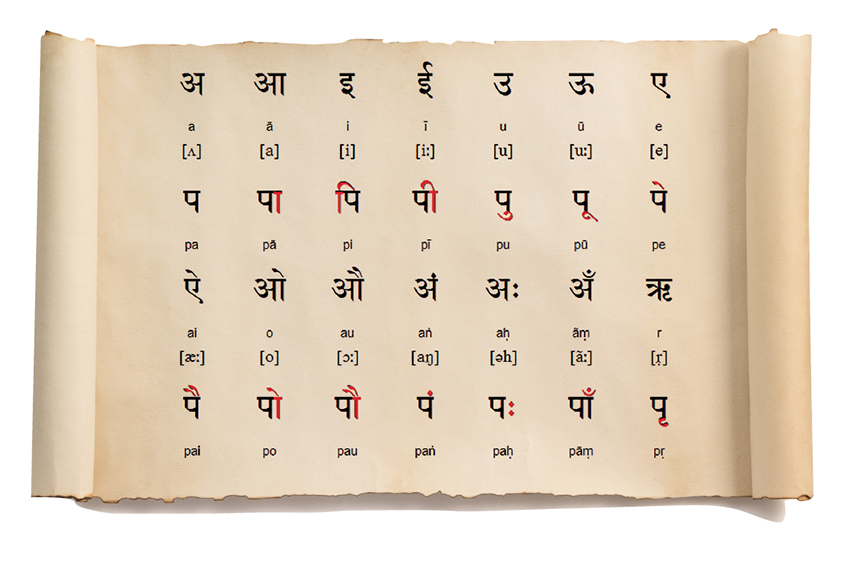 अ आ इ ई उ ऊ ए
a ā i ī u ū e
[ʌ] [a] [i] [i:] [u] [u:] [e]
प पा पि पी पु पू पे
pa pā pi pī pu pū pe
ऐ ओ औ अं अः अँ ऋ
ai o au aṅ aḥ āṃ r
[æ:] [o] [ɔ:] [aŋ] [əh] [ã:] [ṛ]
पै पो पौ पं पः पाँ पृ
pai po pau paṅ paḥ pāṃ pṛ